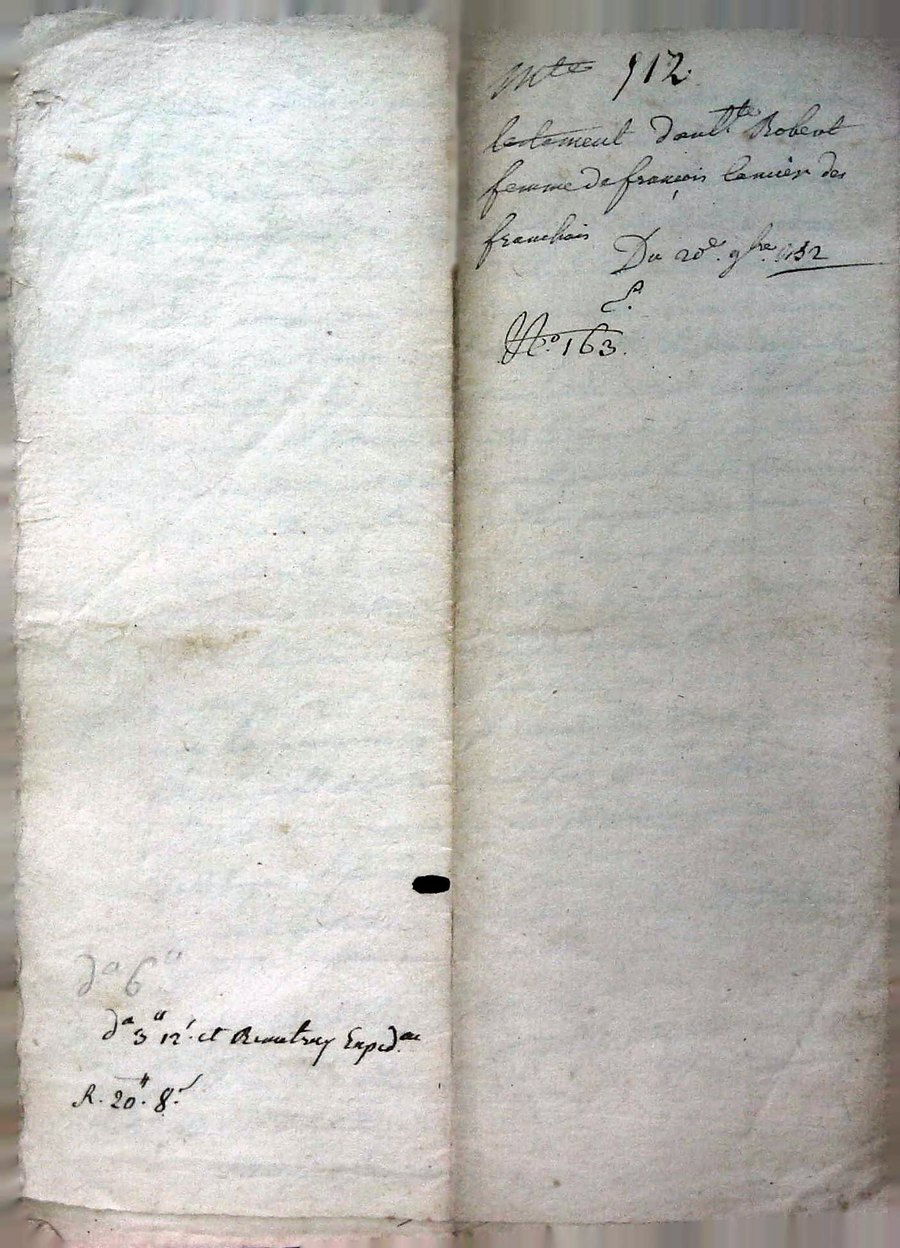 Mte 912
testament dantte Robert
femme de françois Lanier des
franchais
Du 20e. 9bre. 1752
№. 163.
da 6"
da 3" 12s. et Expedon
R. 20". 8s